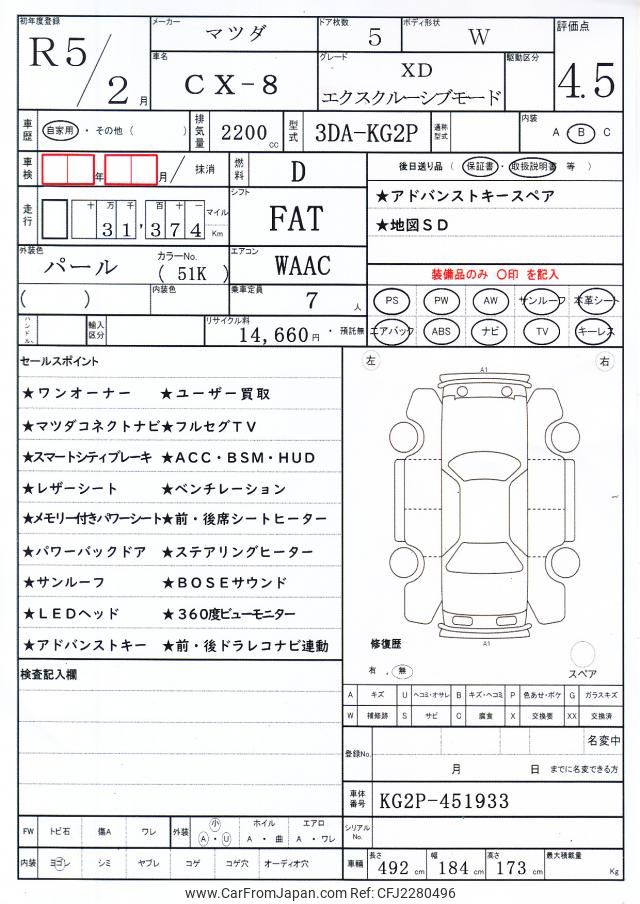 初年度登録
R5/2月
メーカー
マツダ
ドア枚数
5
ボディ形状
W
評価点
4.5
車名
CX-8
グレード
XD
エクスクルーシブモード
駆動区分
車歴
自家用・その他( )
排気量
2200cc
型式
3DA-KG2P
通称型式
内装
A・B C
車検
年 月
抹消
燃料
D
後日送り品(保証書・取扱説明書 等)
★アドバンストキースペア
★地図SD
走行
十 万 千 百 十 一
31,374
マイル
Km
シフト
FAT
外装色
パール
カラーNo.
(51K)
エアコン
WAAC
装備品のみ ○印 を記入
( )
内装色
乗車定員
7人
PS PW AW サンルーフ 本革シート
ハンドル
輸入区分
リサイクル料
14,660円・預託無
エアバック ABS ナビ TV キーレス
セールスポイント
★ワンオーナー ★ユーザー買取
★マツダコネクトナビ★フルセグTV
★スマートシティブレーキ ★ACC・BSM・HUD
★レザーシート ★ベンチレーション
★メモリー付きパワーシート★前・後席シートヒーター
★パワーバックドア ★ステアリングヒーター
★サンルーフ ★BOSEサウンド
★LEDヘッド ★360度ビューモニター
★アドバンストキー ★前・後ドラレコナビ連動
左 右
A1
A1
修復歴
有 . 無
スペア
検査記入欄
A キズ U ヘコミ・オサレ B キズ・ヘコミ P 色あせ・ボケ G ガラスキズ
W 補修跡 S サビ C 腐食 X 交換要 XX 交換済
登録No.
名変中
月 日 までに名変できる方
車体番号
KG2P-451933
シリアルNo.
FW トビ石 傷A ワレ
外装 小 A・U
ホイル A・曲
エアロ A・ワレ
内装 ヨゴレ シミ ヤブレ コゲ コゲ穴 オーディオ穴
車輛
長さ 492cm
幅 184cm
高さ 173cm
最大積載量
Kg
www.CarFromJapan.com Ref: CFJ2280496